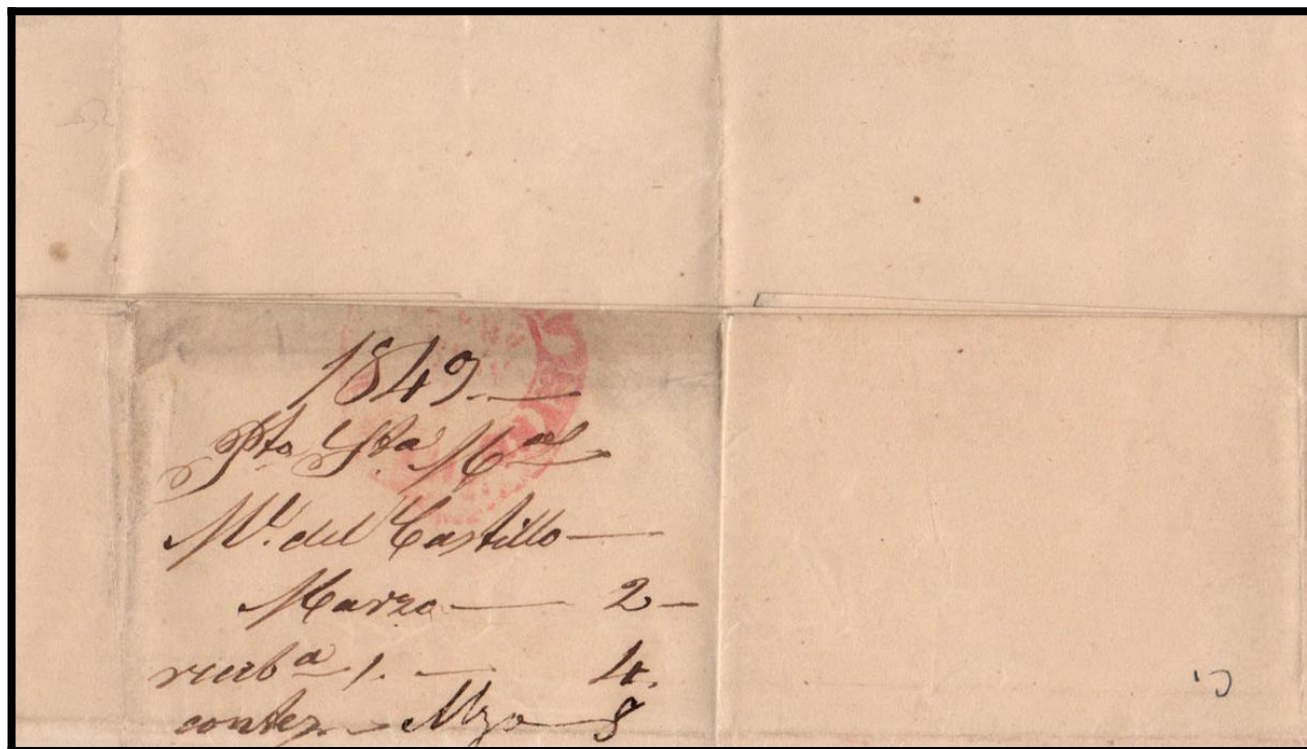 1849.—
Pto Sta Ma
Ml. del Castillo —
Marzo — 2 —
recibª — 4.
contez. — Mzo — 8